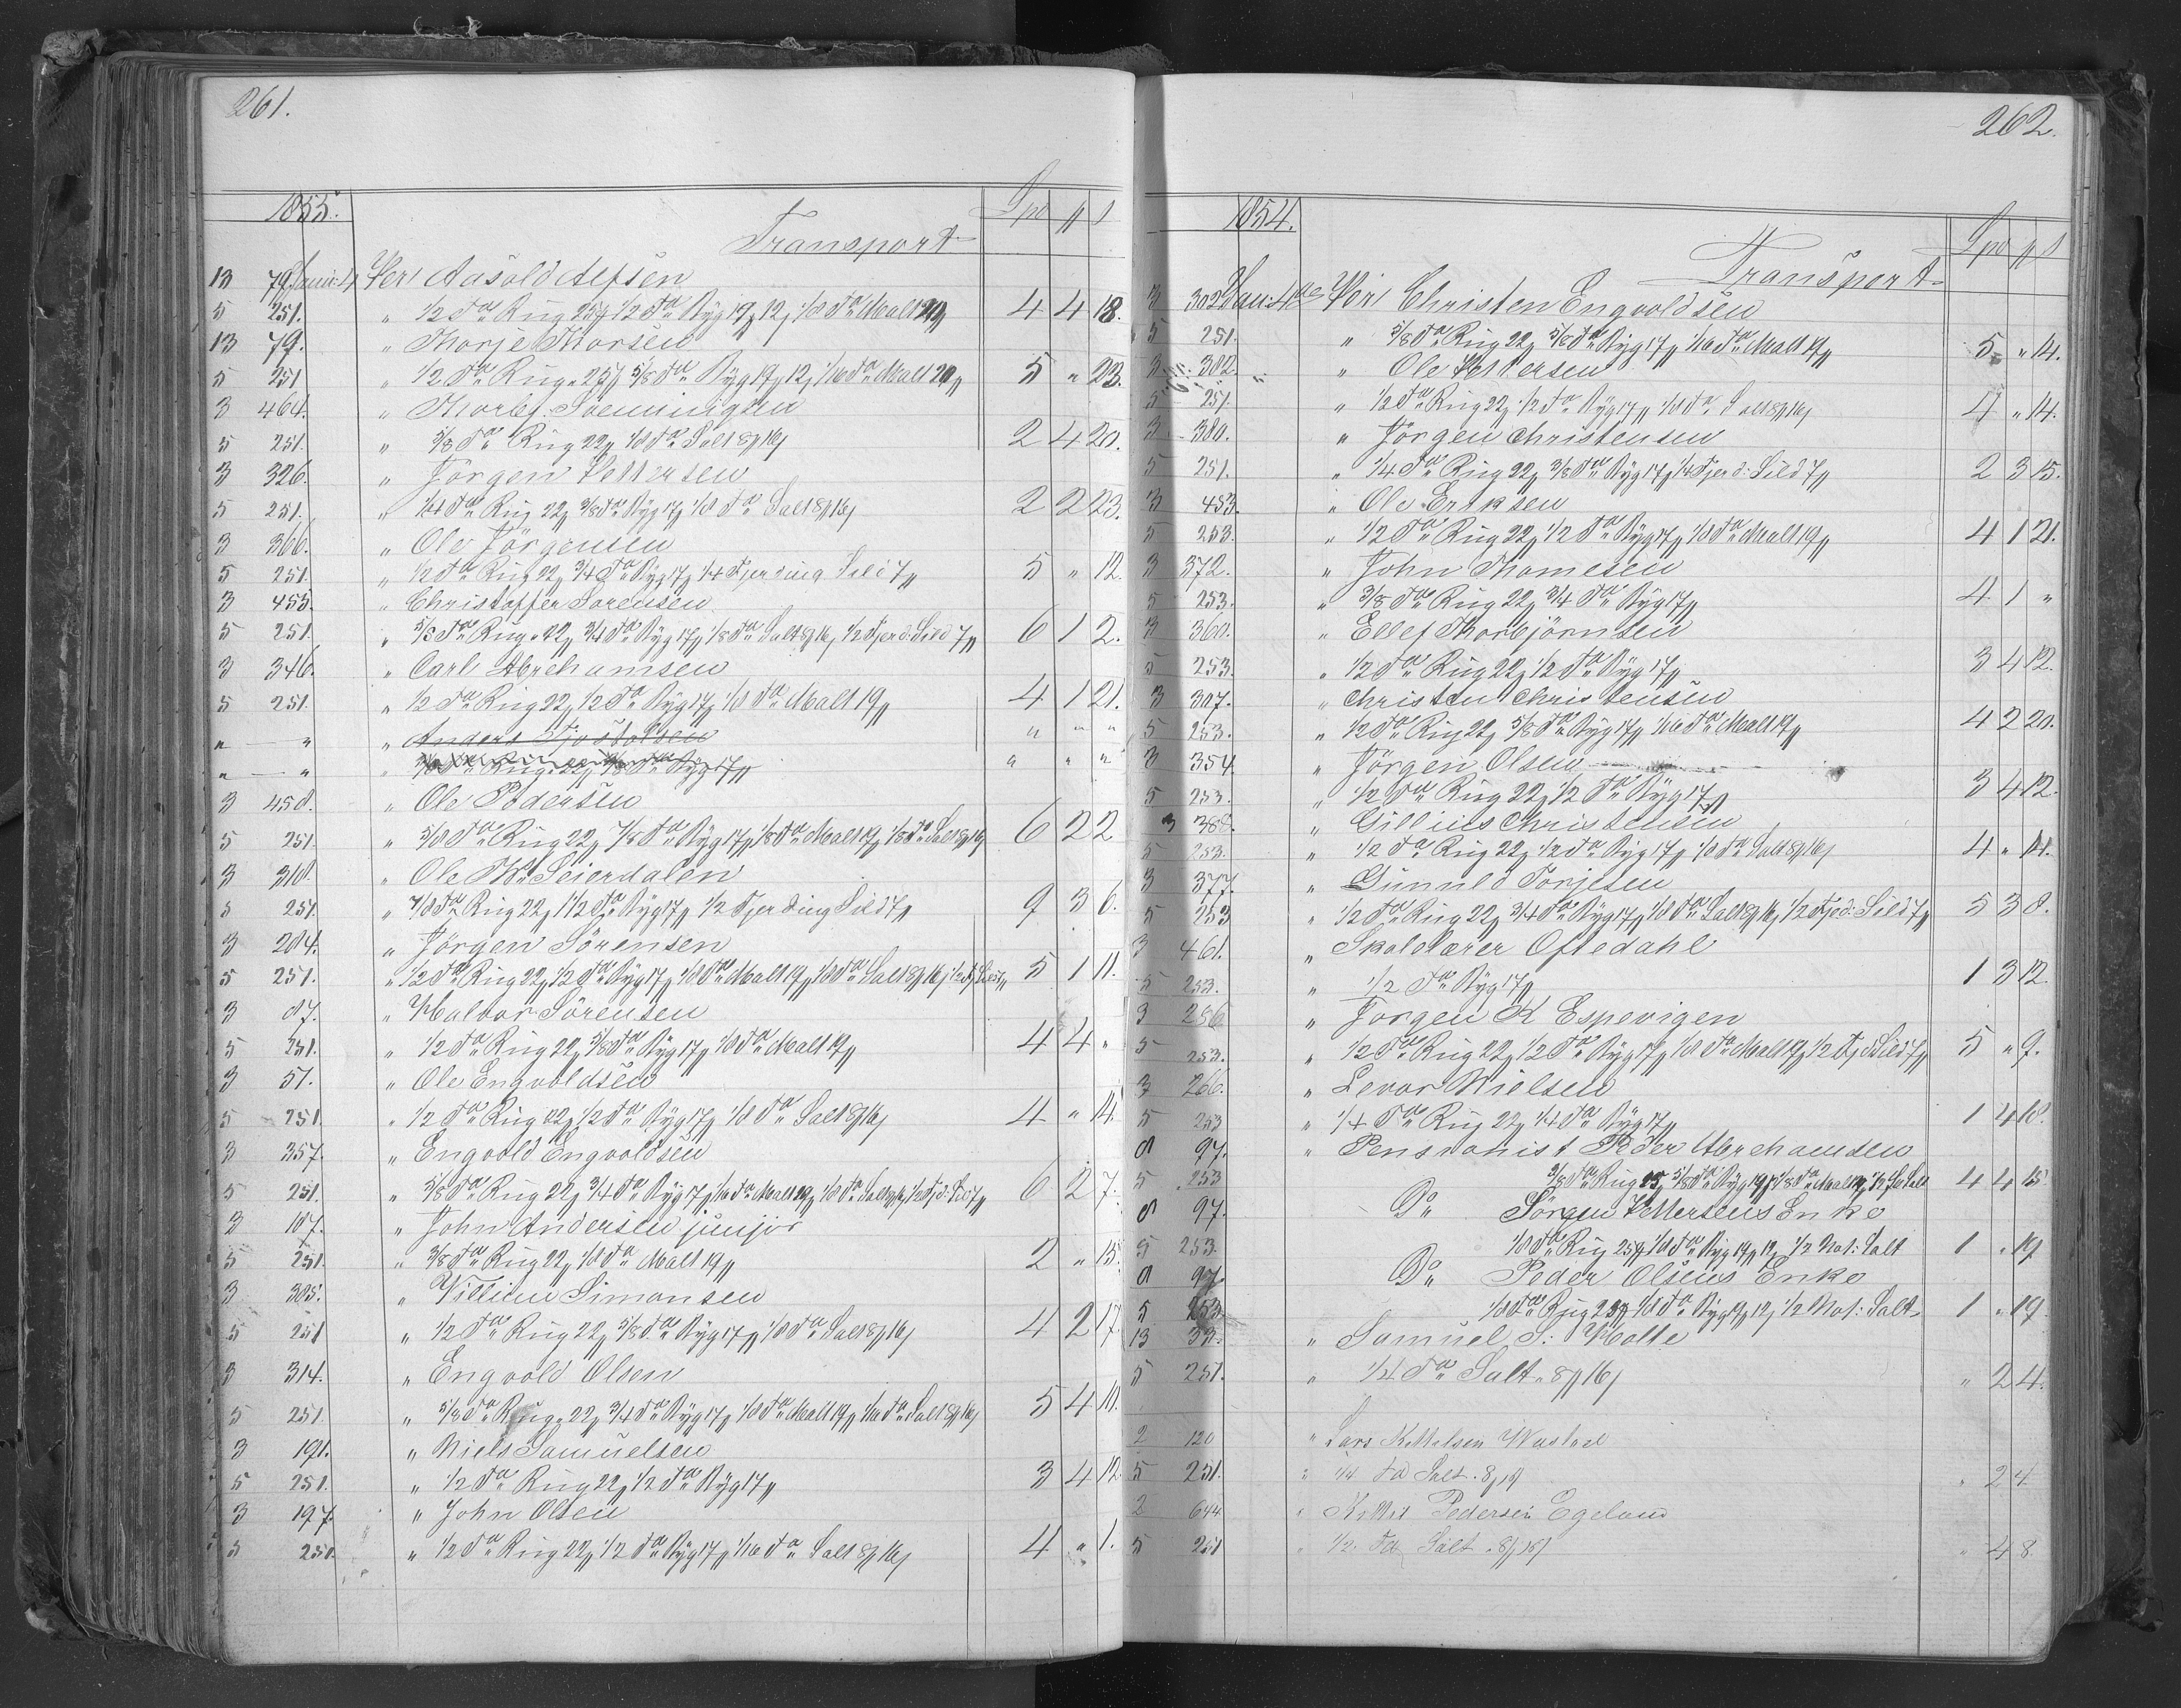 261.
1855. Spd ₰ s
Transport
13 79 Janu: 4 Per Aasold Aefsen
5 251. " 1/2 Tde Rug 25₰ 1/2 Tde Byg 19₰ 12s 1/8 Tde Malt 20₰ 4 4 18.
13 79. " Thorje Thorsen
5 251 " 1/2 Tde Rug " 25₰ 5/8 Tde Byg 19₰ 12s 1/16 Tde Malt 20₰ 5 " 23.
3 464. " Thorbj. Svenningsen
5 251. " 5/8 Tde Rug 22₰ 1/8 Tde Salt 8₰ 16s 2 4 20.
3 326. " Jörgen Pettersen
5 251. " 1/4 Tde Rug 22₰ 3/8 Tde Byg 17₰ 1/8 Tde Salt 8₰ 16s 2 2 23.
3 366. " Ole Jörgensen
5 251. " 1/2 Tde Rug 22₰ 3/4 Tde Byg 17₰ 1/4 Fjerding Sild 7₰ 5 " 12.
3 455. " Christoffer Sorensen
5 251. " 5/8 Tde Rug " 22₰ 3/4 Tde Byg 17₰ 1/8 Tde Salt 8₰ 16s 1/2 Fjerd: Sild 7₰ 6 1 2.
3 346. " Carl Abrehamsen
5 251. " 1/2 Tde Rug 22₰ 1/2 Tde Byg 17₰ 1/8 Tde Malt 19₰ 4 1 21.
" — " " Anders Tjostolsen " " "
" — " " 3/8 Tde Rug " 22₰ 3/8 Tde Byg 17₰ " " "
3 458. " Ole Pedersen
5 251. " 5/8 Tde Rug 22₰ 7/8 Tde Byg 17₰ 1/8 Tde Malt 19₰ 1/8 Tde Salt 8₰ 16s 6 2 2
3 318. " Ole Th. Seierdalen
5 251. " 7/8 Tde Rug 22₰ 1 1/2 Tde Byg 17₰ 1/2 Fjerding Sild 7₰ 9 3 6.
3 284. " Jörgen Sörensen
5 251. " 1/2 Tde Rug 22₰ 1/2 Tde Byg 17₰ 1/8 Tde Malt 19₰ 1/8 Tde Salt 8₰ 16s 1/2 Fj Sild 7₰ 5 1 11.
3 87. " Halvor Sörensen
5 251. " 1/2 Tde Rug 22₰ 5/8 Tde Byg 17₰ 1/8 Tde Malt 19₰ 4 4 "
3 57. " Ole Engvoldsen
5 251. " 1/2 Tde Rug 22₰ 1/2 Tde Byg 17₰ 1/8 Tde Salt 8₰ 16s 4 " 14.
3 357. " Engvold Engvoldsen
5 251. " 5/8 Tde Rug 22₰ 3/4 Tde Byg 17₰ 1/16 Tde Malt 19₰ 1/8 Tde Salt 8₰ 16s 1/2 Fjd: Sild 7₰ 6 2 7.
3 187. " John Andersen junjor
5 251. " 3/8 Tde Rug 22₰ 1/8 Tde Malt 19₰ 2 " 15.
3 305. " Villium Simonsen
5 251 " 1/2 Tde Rug 22₰ 5/8 Tde Byg 17₰ 1/8 Tde Salt 8₰ 16s 4 2 17.
3 314. " Engvold Olsen
5 251 " 5/8 Tde Rug " 22₰ 3/4 Tde Byg 17₰ 1/8 Tde Malt 19₰ 1/16 Tde Salt 8₰ 16s 5 4 10.
3 191. " Niels Samuelsen
5 251. " 1/2 Tde Rug 22₰ 1/2 Tde Byg 17₰ 3 4 12.
3 197. " John Olsen
5 250. " 1/2 Tde Rug 22₰ 1/2 Tde Byg 17₰ 1/16 Tde Salt 8₰ 16s 4 " 1.
262.
1854. Spd ₰ s
Transport
3 302 Janu: 4de Per Christen Engvoldsen
5 251. " 5/8 Tde Rug 22₰ 5/8 Tde Byg 17₰ 1/16 Tde Malt 19₰ 5 " 14.
3 382. " Ole Pettersen
5 251. " 1/2 Tde Rug 22₰ 1/2 Tde Byg 17₰ 1/8 Tde Salt 8₰ 16s 4 " 14.
3 380. " Jörgen Christensen
5 251. " 1/4 Tde Rug 22₰ 3/8 Tde Byg 17₰ 1/4 Fjerd: Sild 7₰ 2 3 15.
3 453. " Ole Eriksen
5 253. " 1/2 Tde Rug 22₰ 1/2 Tde Byg 17₰ 1/8 Tde Malt 19₰ 4 1 21.
3 372. " John Thomesen
5 253. " 3/8 Tde Rug 22₰ 3/4 Tde Byg 17₰ 4 1 "
3 360. " Ellef Thorbjörnsen
5 253. " 1/2 Tde Rug 22₰ 1/2 Tde Byg 17₰ 3 4 12.
3 307. " Christen Christensen
5 253. " 1/2 Tde Rug 22₰ 5/8 Tde Byg 17₰ 1/16 Tde Malt 19₰ 4 2 20.
3 354. " Jörgen Olsen
5 253. " 1/2 Tde Rug 22₰ 1/2 Tde Byg 17₰ 3 4 12.
3 388. " Gillius Christensen
5 253. " 1/2 Tde Rug 22₰ 1/2 Tde Byg 17₰ 1/8 Tde Salt 8₰ 16s 4 " 14.
3 377. " Gunnuld Torjesen
5 253 " 1/2 Tde Rug 22₰ 3/4 Tde Byg 17₰ 1/8 Tde Salt 8₰ 16s 1/2 Fjd: Sild 7₰ 5 3 8.
3 461. " Skolelærer Oftedahl
5 253. " 1/2 Tde Byg 17₰ 1 3 12.
3 286 " Jörgen K Espevigen
5 253. " 1/2 Tde Rug 22₰ 1/2 Tde Byg 17₰ 1/8 Tde Malt 19₰ 1/2 Fjd Sild 7₰ 5 " 9.
3 266. " Levor Nielsen
5 253 " 1/4 Tde Rug 22₰ 1/4 Tde Byg 17₰ 1 4 18.
8 97. " Pensionist Peder Abrehamsen
5 253 3/8 Tde Rug 25₰ 5/8 Tde Byg 19₰ 1/8 Tde Malt 4 4 15.
8 97. Do Sörgen Pettersens Enke
5 253. 1/8 Tde Rug 25₰ 1/8 Tde Byg 19₰ 12s 1/2 Not: Salt 1 " 19
8 97. Do Peder Olsens Enke
5 253. 1/8 Tde Rug 25₰ 1/8 Tde Byg 19₰ 12s 1/2 Not: Salt 1 " 19.
13 33. " Samuel S: Holte
5 251. " 1/4 Tde Salt " 8₰ 16s " 2 4.
2 120 " Lars Kittelsen
5 251. " 1/4 Td Salt . 8₰ 16s " 2 4
2 644 " Kittel Pedersen Egeland
5 251 " 1/2 Td Salt . 8₰ 16s " 4 8.